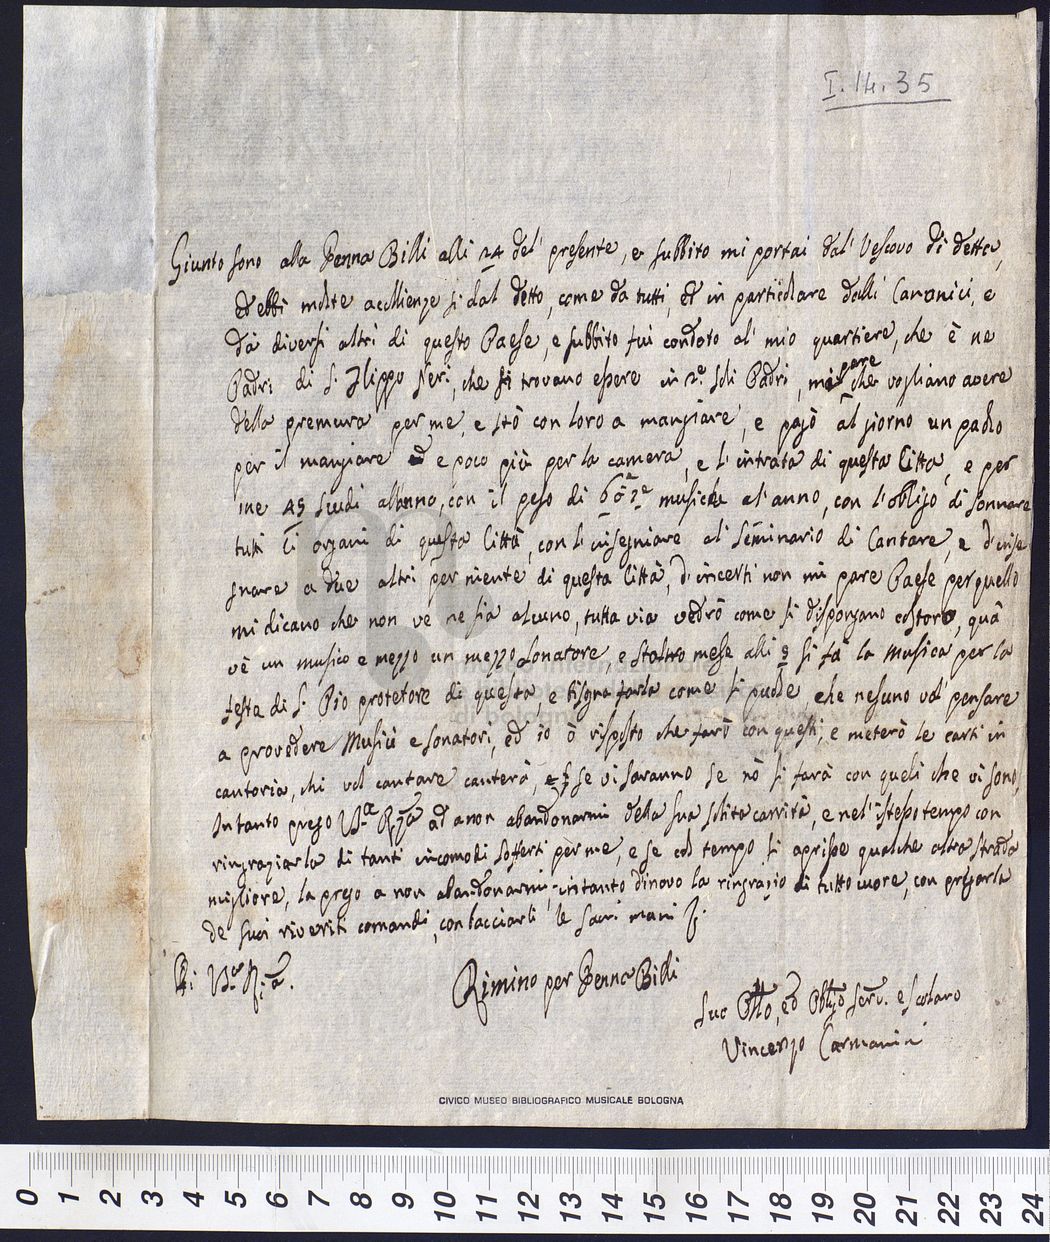 I.14.35
Giunto sono alla Penna Billi alli 24 del' presente, e subbito mi portai dal' Vescovo di detta,
ed ebbi molte acollienze si dal detto, come da tutti, ed in particolare dalli Canonici, e
da diversi altri di questo Paese, e subbito fui condoto al' mio quartiere, che è ne
Padri di S. Flippo Neri, che si trovano essere in 2.e soli Padri, mi pare che vogliano avere
della premura per me, e stò con loro a mangiare, e pagò al giorno un paolo
per il mangiare e poco più per la camera, e l'intrata di questa Citta, e per
me 45 scudi all'anno, con il peso di 6 ò 7.e musiche al'anno, con l'obligo di sonnare
tutti li organi di questa Città, con l'insegniare al Seminario di Cantare, e d'inse
gnare a due altri per niente di questa Città, d'incerti non mi pare Paese per quello
mi dicano che non ve ne sia alcuno, tutta via vedrò come si disporgano costoro, quà
vè un musico e mezzo un mezzo sonatore, e st'altro mese alli 9 si fà la Musica per la
festa di S. Pio protetore di questa, e bisgna farla come si puole, che nesuno vol' pensare
a provedere Musici e sonatori, ed io ò risposto che farò con questi, e meterò le carti in
cantoria, chi vol cantare canterà, se vi saranno se nò si farà con queli che vi sono,
Intanto prego V.S.a R.ma ad a non abandonarmi della sua solita carrità, e nel' istesso tempo con
ringraziarla di tanti incomodi sofferti per me, e se col tempo si aprisse qualche altra strada
migliore, la prego a non abandonarmi, intanto dinovo la ringrazio di tutto cuore, con pregarla
de suoi riveriti comandi, con bacciarli le sacri mani
Di V.S. R.ma.
Rimino per Penna Billi
Suo Ob.mo, ed Obl.mo Serv. e scolaro
Vincenzo Carmanini
CIVICO MUSEO BIBLIOGRAFICO MUSICALE BOLOGNA
0 1 2 3 4 5 6 7 8 9 10 11 12 13 14 15 16 17 18 19 20 21 22 23 24